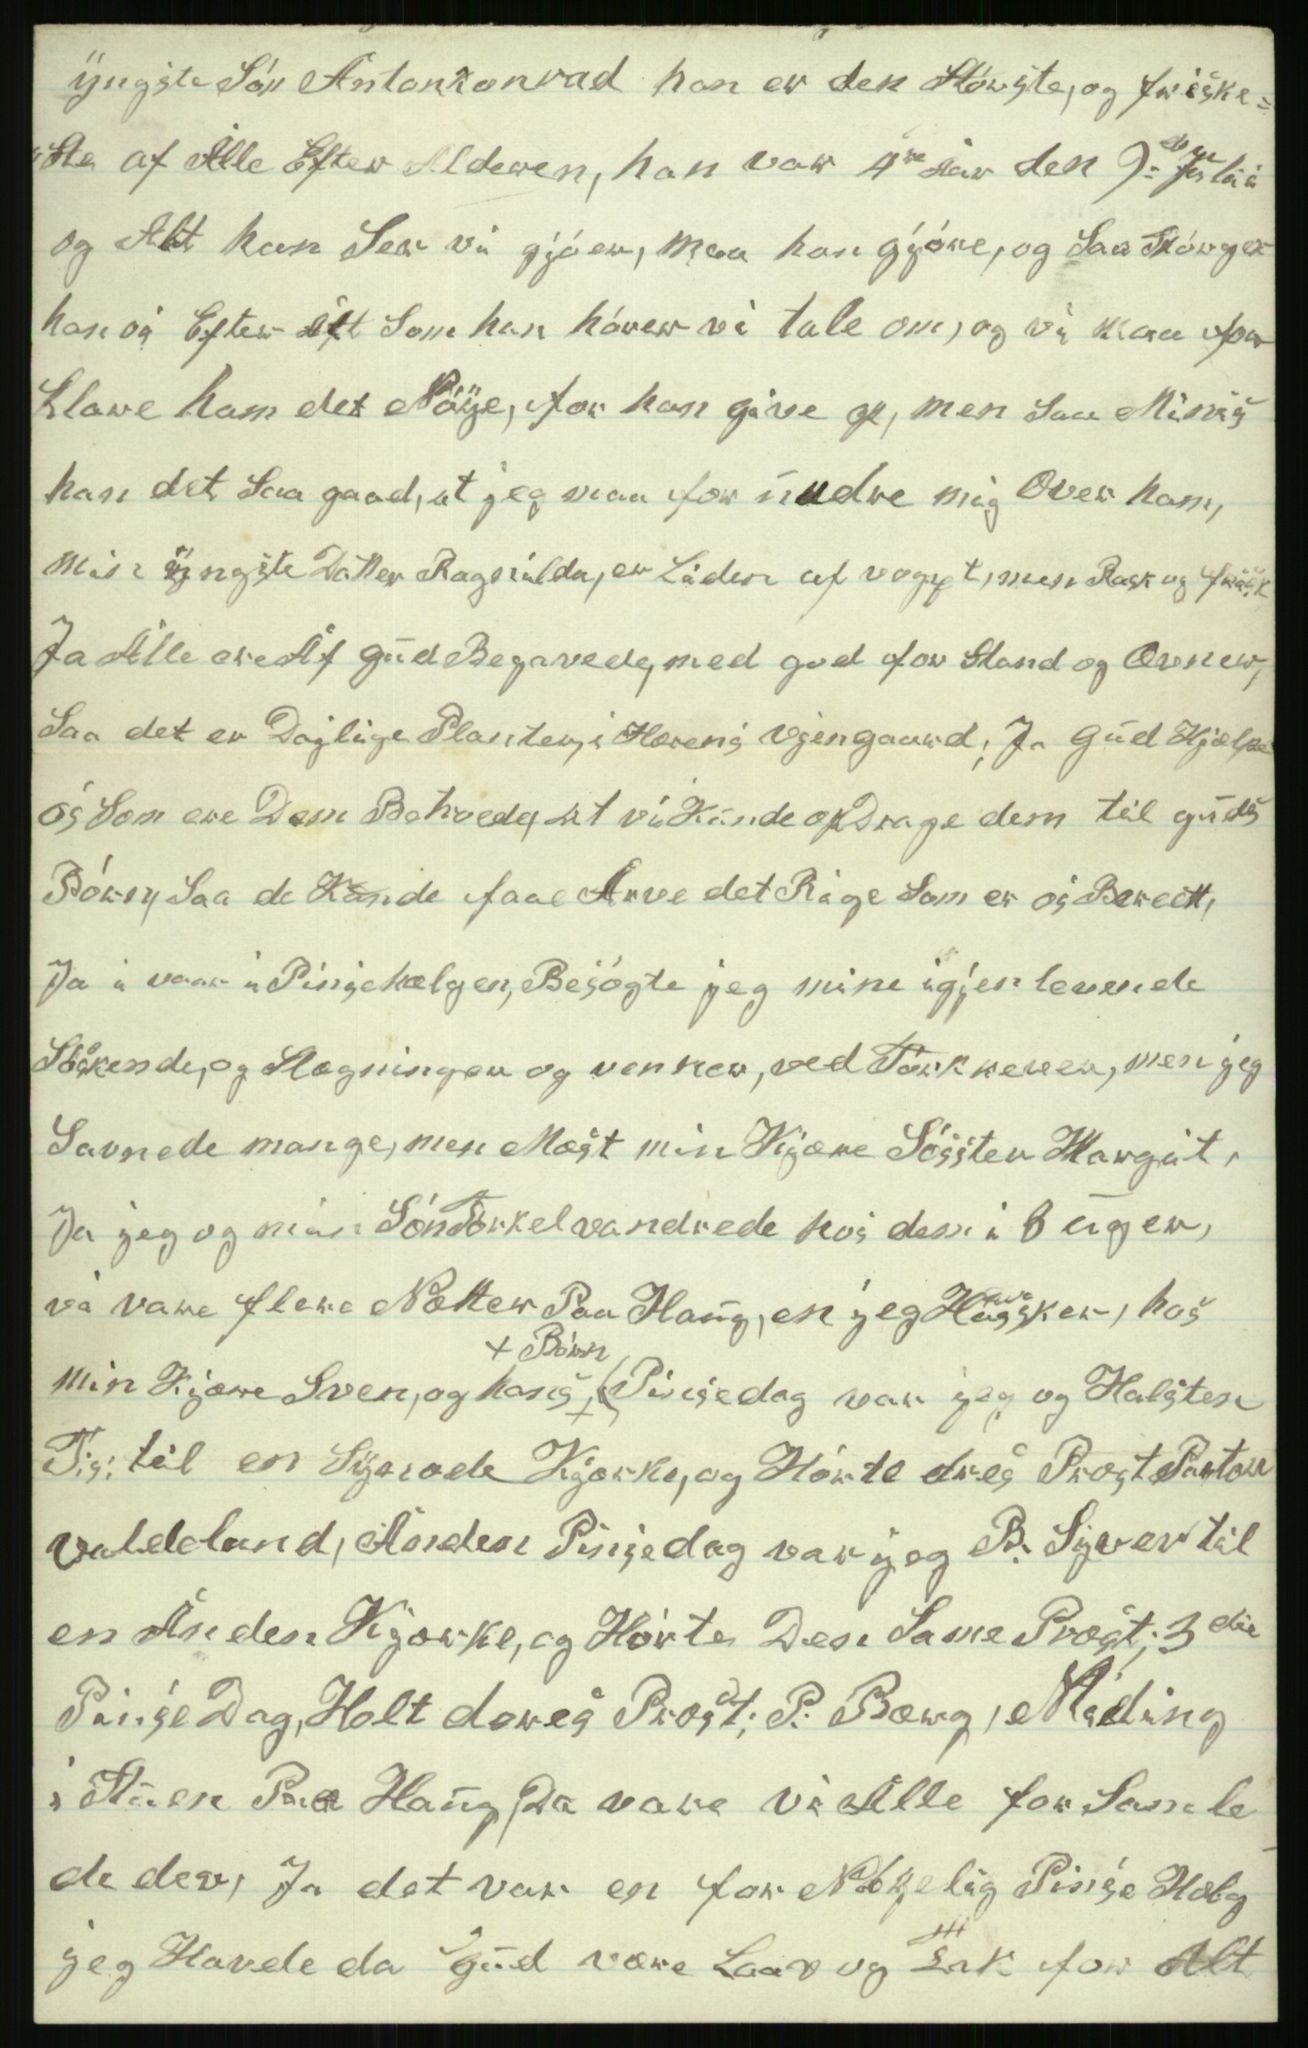 ÿngste Són Antonkonrad han er den Stórste, og friske=
"Ste af Alle Efter Alderen, han var 4re Aar den 9de Julii
og Alt han Ser vi gjóer, maa han gjóre, og Saa Spórger
han ós Efter Alt Som han hórer vi tale om, og vi maa for
klare ham det Nóÿe, for han give op, men Saa Minis
han det Saa gaad, at jeg maa for ündre mig Over ham,
min ÿngste Datter Ragnilda, er Liden af vegst, men Rask og frisk
Ja Alle ere Af Güd Begavede, med god for Stand og Evner,
Saa det er Dajlige Planter, i Herens Vjingaard, Ja Güd Hjælpe
ós Som ere Dem Betroede, at vi Künde opDrage dem til güds
Bórn, Saa de Kunde faae Arve det Rige Som er ós Bereett,
Ja i vaar i Pinsehælgen, Besógte jeg mine igjenlevende
Sóskende, og Slægninger og venner, ved Tórkneren, men jeg
Savnede mange, men Mæst min Kjære Sósster Margit,
Ja jeg og min Són Torkel vandrede hós dem i 6 üger,
vi vare flere Nætter Paa Haüg, en jeg Hüssker, hos
min Kjære Sven, og hans + Bórn, (Pinsedag var jeg og Halsten
T.s; til en Sÿerode Kjærke, og Hórte dres Præst Pastor
Valdeland, Anden Pinsedag var jeg B. Syver til
en Anden Kjærke, og Hórte Den Same Præst; 3die
Pinse Dag, Holt deres Præst; P. Bærg, Mediing
i Stüen Paa Haüg, Da vare Vi Alle for Samle
de der, Ja det var en for Nóÿelig Pinse Hælg
jeg Havde da Güd være Laav og Tak for Alt